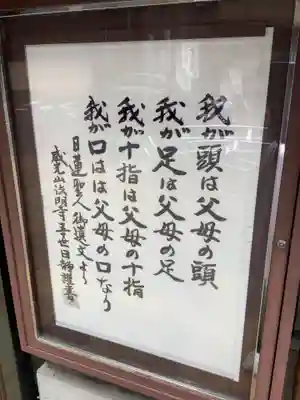 我が頭は父母の頭
我が足は父母の足
我が十指は父母の十指
我が口は父母の口なり
日蓮聖人御遺文より